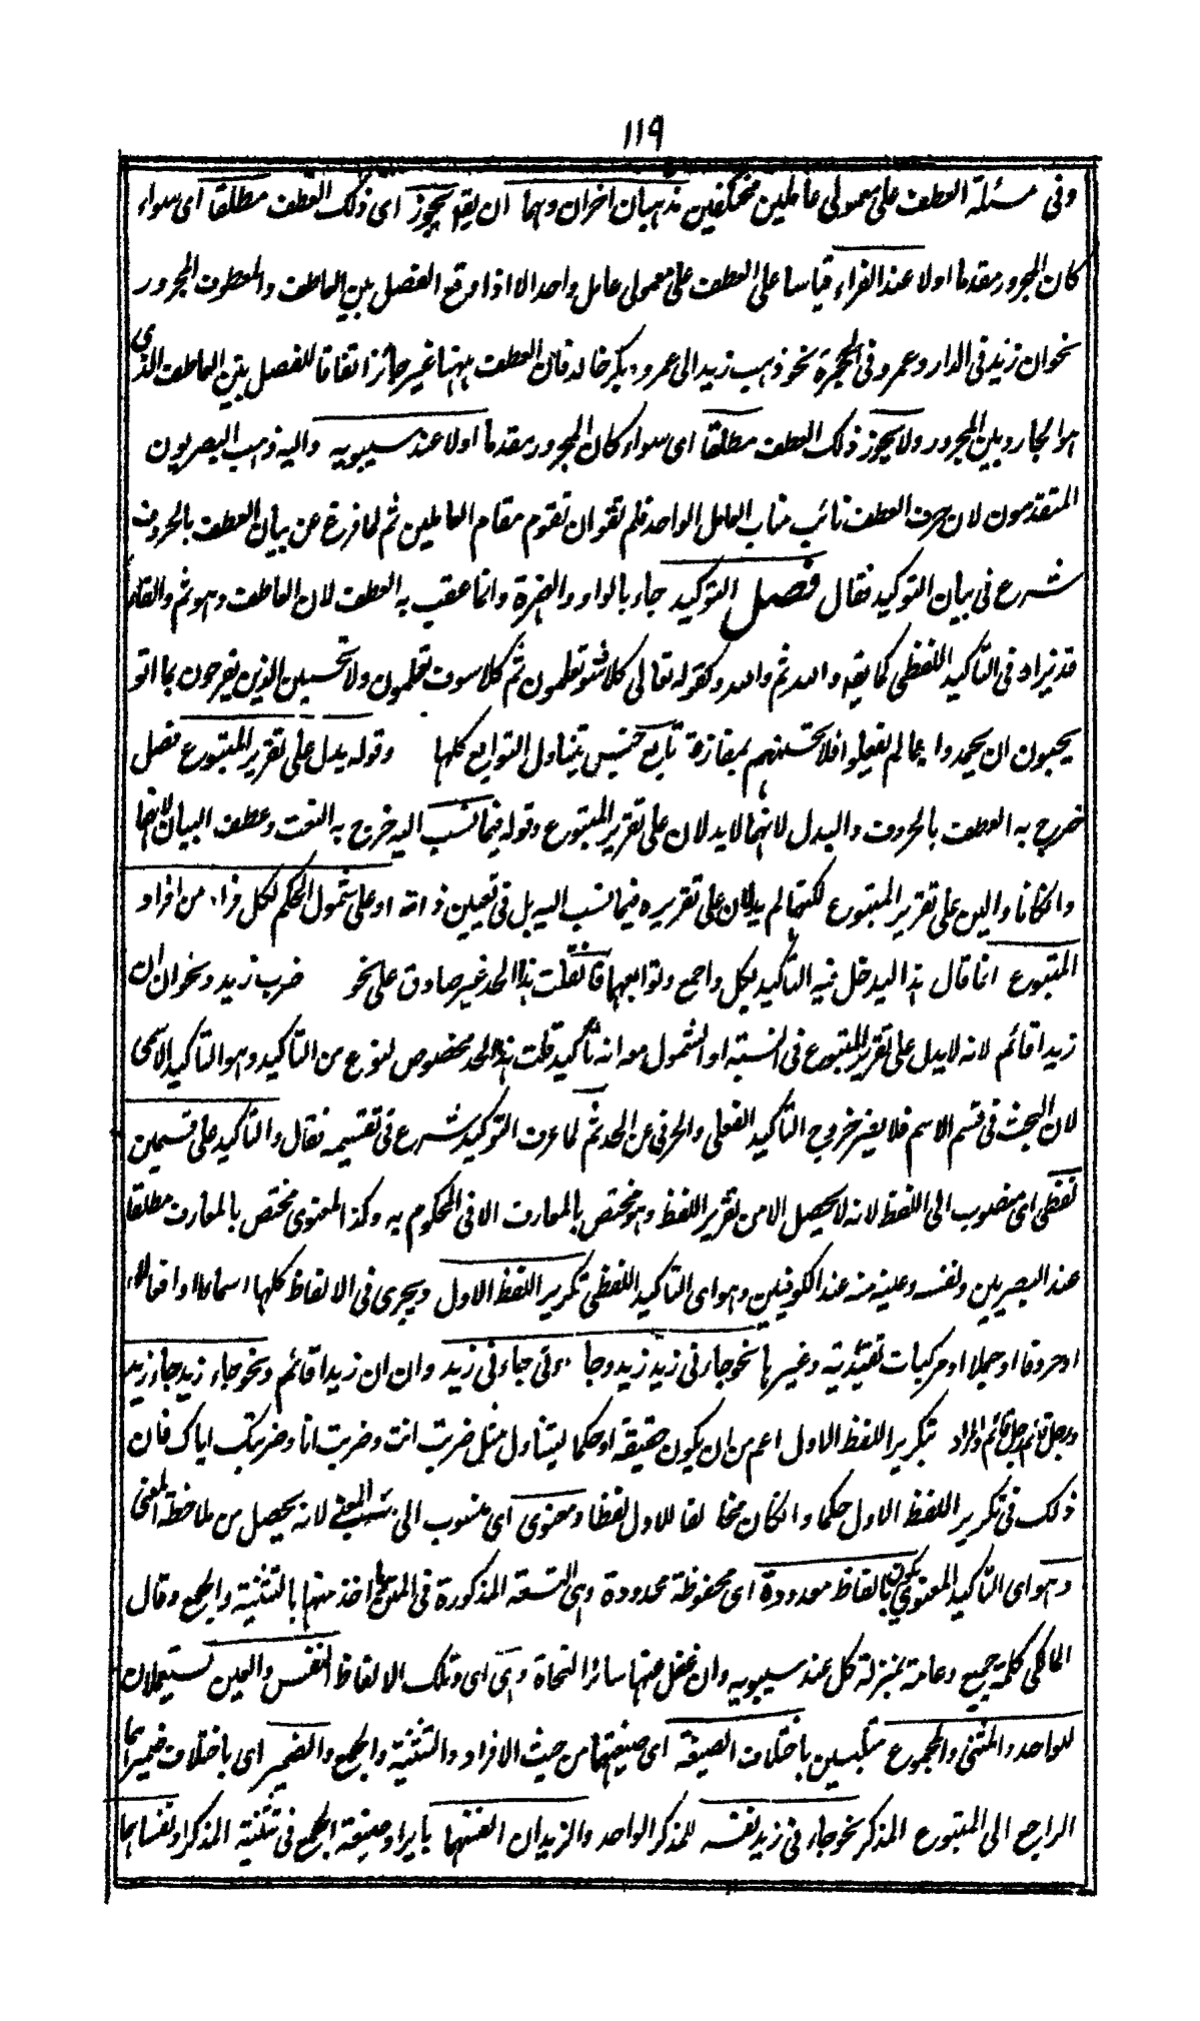 ١١٩
وفى مسئلة العطف على معمولى عاملين مختلفين مذهبان اخران وهما ان يقه يجوز اى ذلك العطف مطلقا اى سواء
كان المجرور مقدما اولا عند الفراء قياسا على العطف على معمولى عامل واحد الا اذا وقع الفصل بين العاطف والمعطوف المجرور
نحو ان زيد فى الدار وعمرو فى الحجرة نحو ذهب زيد الى عمرو وبكر خالد فان العطف ههنا غير جائز اتفاقا للفصل بين العاطف الذى
هو الجار وبين المجرور ولا يجوز ذلك العطف مطلقا اى سواء كان المجرور مقدما اولا عند سيبويه واليه ذهب البصريون
المتقدمون لان حرف العطف نائب مناب العامل الواحد فلم تقو ان تقوم مقام العاملين ثم لما فرغ عن بيان العطف بالحروف
شرع فى بيان التوكيد فقال فصل التوكيد جاء بالواو والهمزة وانما عقب به العطف لان العاطف وهو ثم والفاء
قد يزاد فى التاكيد اللفظى كما يقه والله ثم والله وكقوله تعالى كلا سوف تعلمون ثم كلا سوف تعلمون ولا تحسبن الذين يفرحون بما اتو
يحبون ان يحمدوا بما لم يفعلوا فلا تحسبنهم بمفازة تابع جنس يتناول التوابع كلها وقوله يدل على تقرير المتبوع فصل
خرج به العطف بالحروف والبدل لانهما لا يدلان على تقرير المتبوع وقوله فيما نسب اليه خرج به النعت وعطف البيان لانهما
وان كانا دالين على تقرير المتبوع لكنهما لم يدلان على تقريره فيما نسب اليه بل فى تعيين ذاته او على شمول الحكم لكل فرد من افراد
المتبوع انما قال هذا ليدخل فيه التاكيد بكل واجمع وتوابعهما فان قلت هذا الحد غير صادق على نحو ضرب زيد ونحو ان ان
زيدا قائم لانه لا يدل على تقرير المتبوع فى النسبة او الشمول مع انه تأكيد قلت هذا الحد مخصوص لنوع من التاكيد وهو التاكيد الاسمى
لان البحث فى قسم الاسم فلا يضر خروج التأكيد الفعلى والحرفى عن الحد ثم لما عرف التوكيد شرع فى تقسيمه فقال والتاكيد على قسمين
لفظى اى منسوب الى اللفظ لانه لا يحصل الا من تقرير اللفظ وهو مختص بالمعارف الا فى المحكوم به وكذا المعنوى مختص بالمعارف مطلقا
عند البصريين ونفسه وعينه منه عند الكوفيين وهو اى التاكيد اللفظى تكرير اللفظ الاول ويجرى فى الالفاظ كلها اسماء او افعالا
او حروفا او جملا او مركبات تقييدية وغيرها نحو جاءنى زيد زيد وجاءنى جاءنى زيد وان ان زيدا قائم ونحو جاء زيد جاء زيد
ورجل قائم رجل قائم والمراد بتكرير اللفظ الاول اعم من ان يكون حقيقة او حكما ليتناول مثل ضربت انت وضربت انا وضربتك اياك فان
ذلك فى تكرير اللفظ الاول حكما وان كان مخالفا للاول لفظا ومعنوى اى منسوب الى المعنى لانه يحصل من ملاحظة المعنى
وهو اى التاكيد المعنوى يكون بالفاظ معدودة اى محفوظة محدودة وهى التسعة المذكورة فى المتن اخذ منها بالتثنية والجمع وقال
المالكى كلمة جميع وعامة بمنزلة كل عند سيبويه وان غفل عنها سائر النحاة وهى اى وتلك الالفاظ النفس والعين تستعملان
للواحد والمثنى والمجموع متلبسين باختلاف الصيغة اى صيغتها من حيث الافراد والتثنية والجمع والضمير اى باختلاف ضميرهما
الراجع الى المتبوع المذكر نحو جاءنى زيد نفسه للمذكر الواحد والزيدان انفسهما بايراد صيغة الجمع فى تثنية المذكر او نفساهما